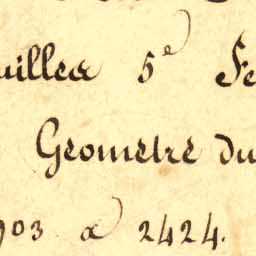 uillea 5e Fe
Geometre du
903 a 2424.